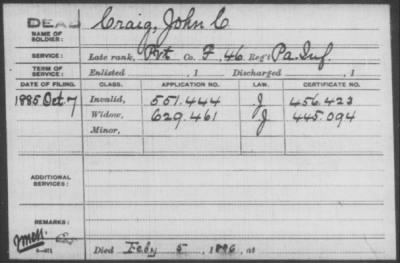 DEAD
NAME OF SOLDIER: Craig, John C
SERVICE: Late rank, Pvt Co. F, 46 Reg't Pa. Inf.
TERM OF SERVICE: Enlisted , 1 Discharged , 1
DATE OF FILING. CLASS. APPLICATION NO. LAW. CERTIFICATE NO.
1885 Oct. 7 Invalid, 551.444 J 456.423
Widow, 629.461 J 445.094
Minor,
ADDITIONAL SERVICES:
REMARKS:
Died Feby 5, 1896, at